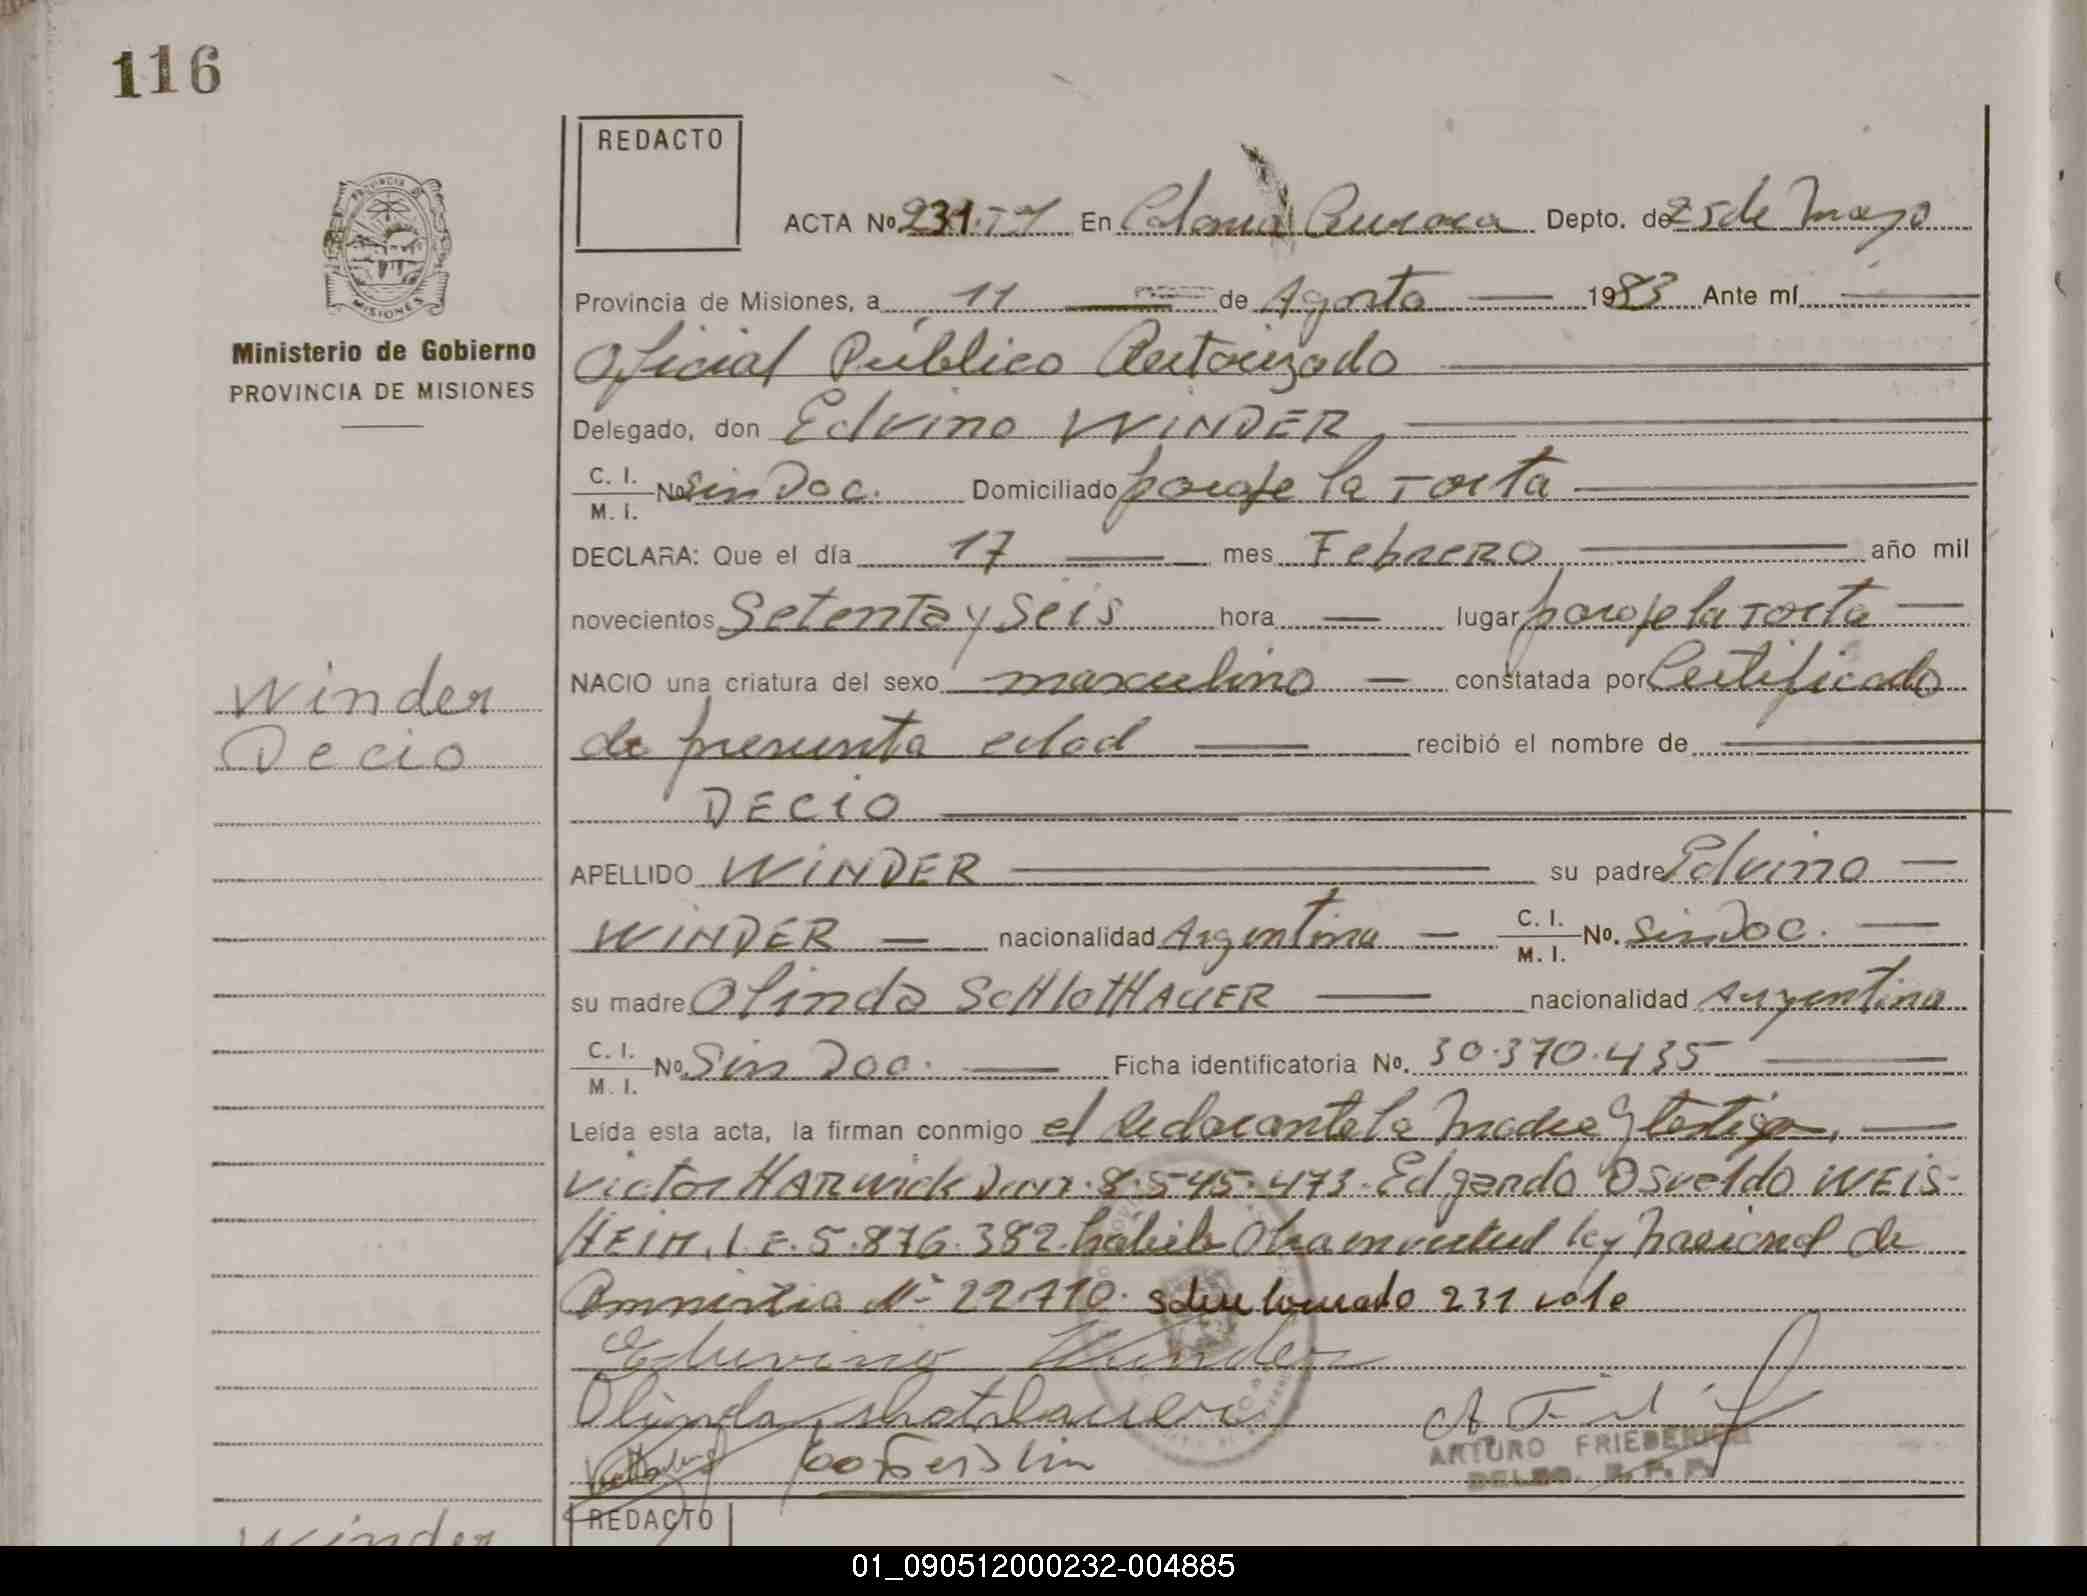 116
REDACTO
ACTA Nº 231.T7 En Colonia Aurora Depto. de 25 de Mayo
Provincia de Misiones, a 11 de Agosto 1983 Ante mí
Ministerio de Gobierno
PROVINCIA DE MISIONES
Oficial Público Autorizado
Delegado, don Edvino WINDER
C. I. M. I. Nº Sin Doc. Domiciliado paraje la Torta
DECLARA: Que el día 17 mes FEbRERO año mil
novecientos Setenta y Seis hora lugar paraje la Torta
NACIO una criatura del sexo masculino constatada por Certificado
de presunta edad recibió el nombre de
Winder
Decio
DECIO
APELLIDO WINDER su padre Edvino
WINDER nacionalidad Argentina C. I. M. I. Nº. Sin Doc.
su madre Olinda ScHlotHAUER nacionalidad Argentina
C. I. M. I. Nº. Sin Doc. Ficha identificatoria Nº. 30.370.435
Leída esta acta, la firman conmigo el declarante la Madre y testigos,
Victor HARwick 8.545.473. Edgardo Osvaldo WEIS-
HEIM, L.E. 5.876.382. hábiles Obra en virtud ley nacional de
Amnistia Nº 22710. sobre borrado 231 vale
Edwino Winder
Olinda
ARTURO FRIEDERICH
DELEG. R. P. P.
REDACTO
Winder
PROVINCIA DE MISIONES
01_090512000232-004885